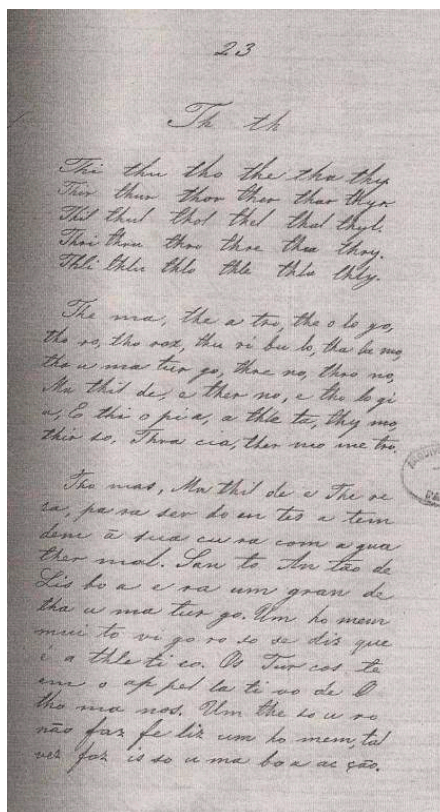 23
Th th
Thi thu tho the tha thy
Thir thur thor ther thar thyr
Thil thul thol thel thal thyl.
Thri thru thro thre thra thry.
Thli thlu thlo thle thla thly.
The ma, the a tro, the o lo go,
tho ro, tho rax, thu ri bu lo, tha la mo,
tha u ma tur go, thre no, thro no,
Ma thil de, e ther no, e tho lo gi
a, E thi o pia, a thle ta, thy mo,
thir so, Thra cia, ther mo me tro.
Tho mas, Ma thil de e The re
za, pa ra ser do en tes a ten
dem á sua cu ra com a gua
ther mal. San to An tão de
Lis bo a e ra um gran de
tha u ma tur go. Um ho mem
mui to vi go ro so se diz que
é a thle ti co. Os Tur cos te
em o ap pel la ti vo de O
tho ma nos. Um the so u ro
não faz fe liz um ho mem, tal
vez faz is so u ma bo a ac ção.